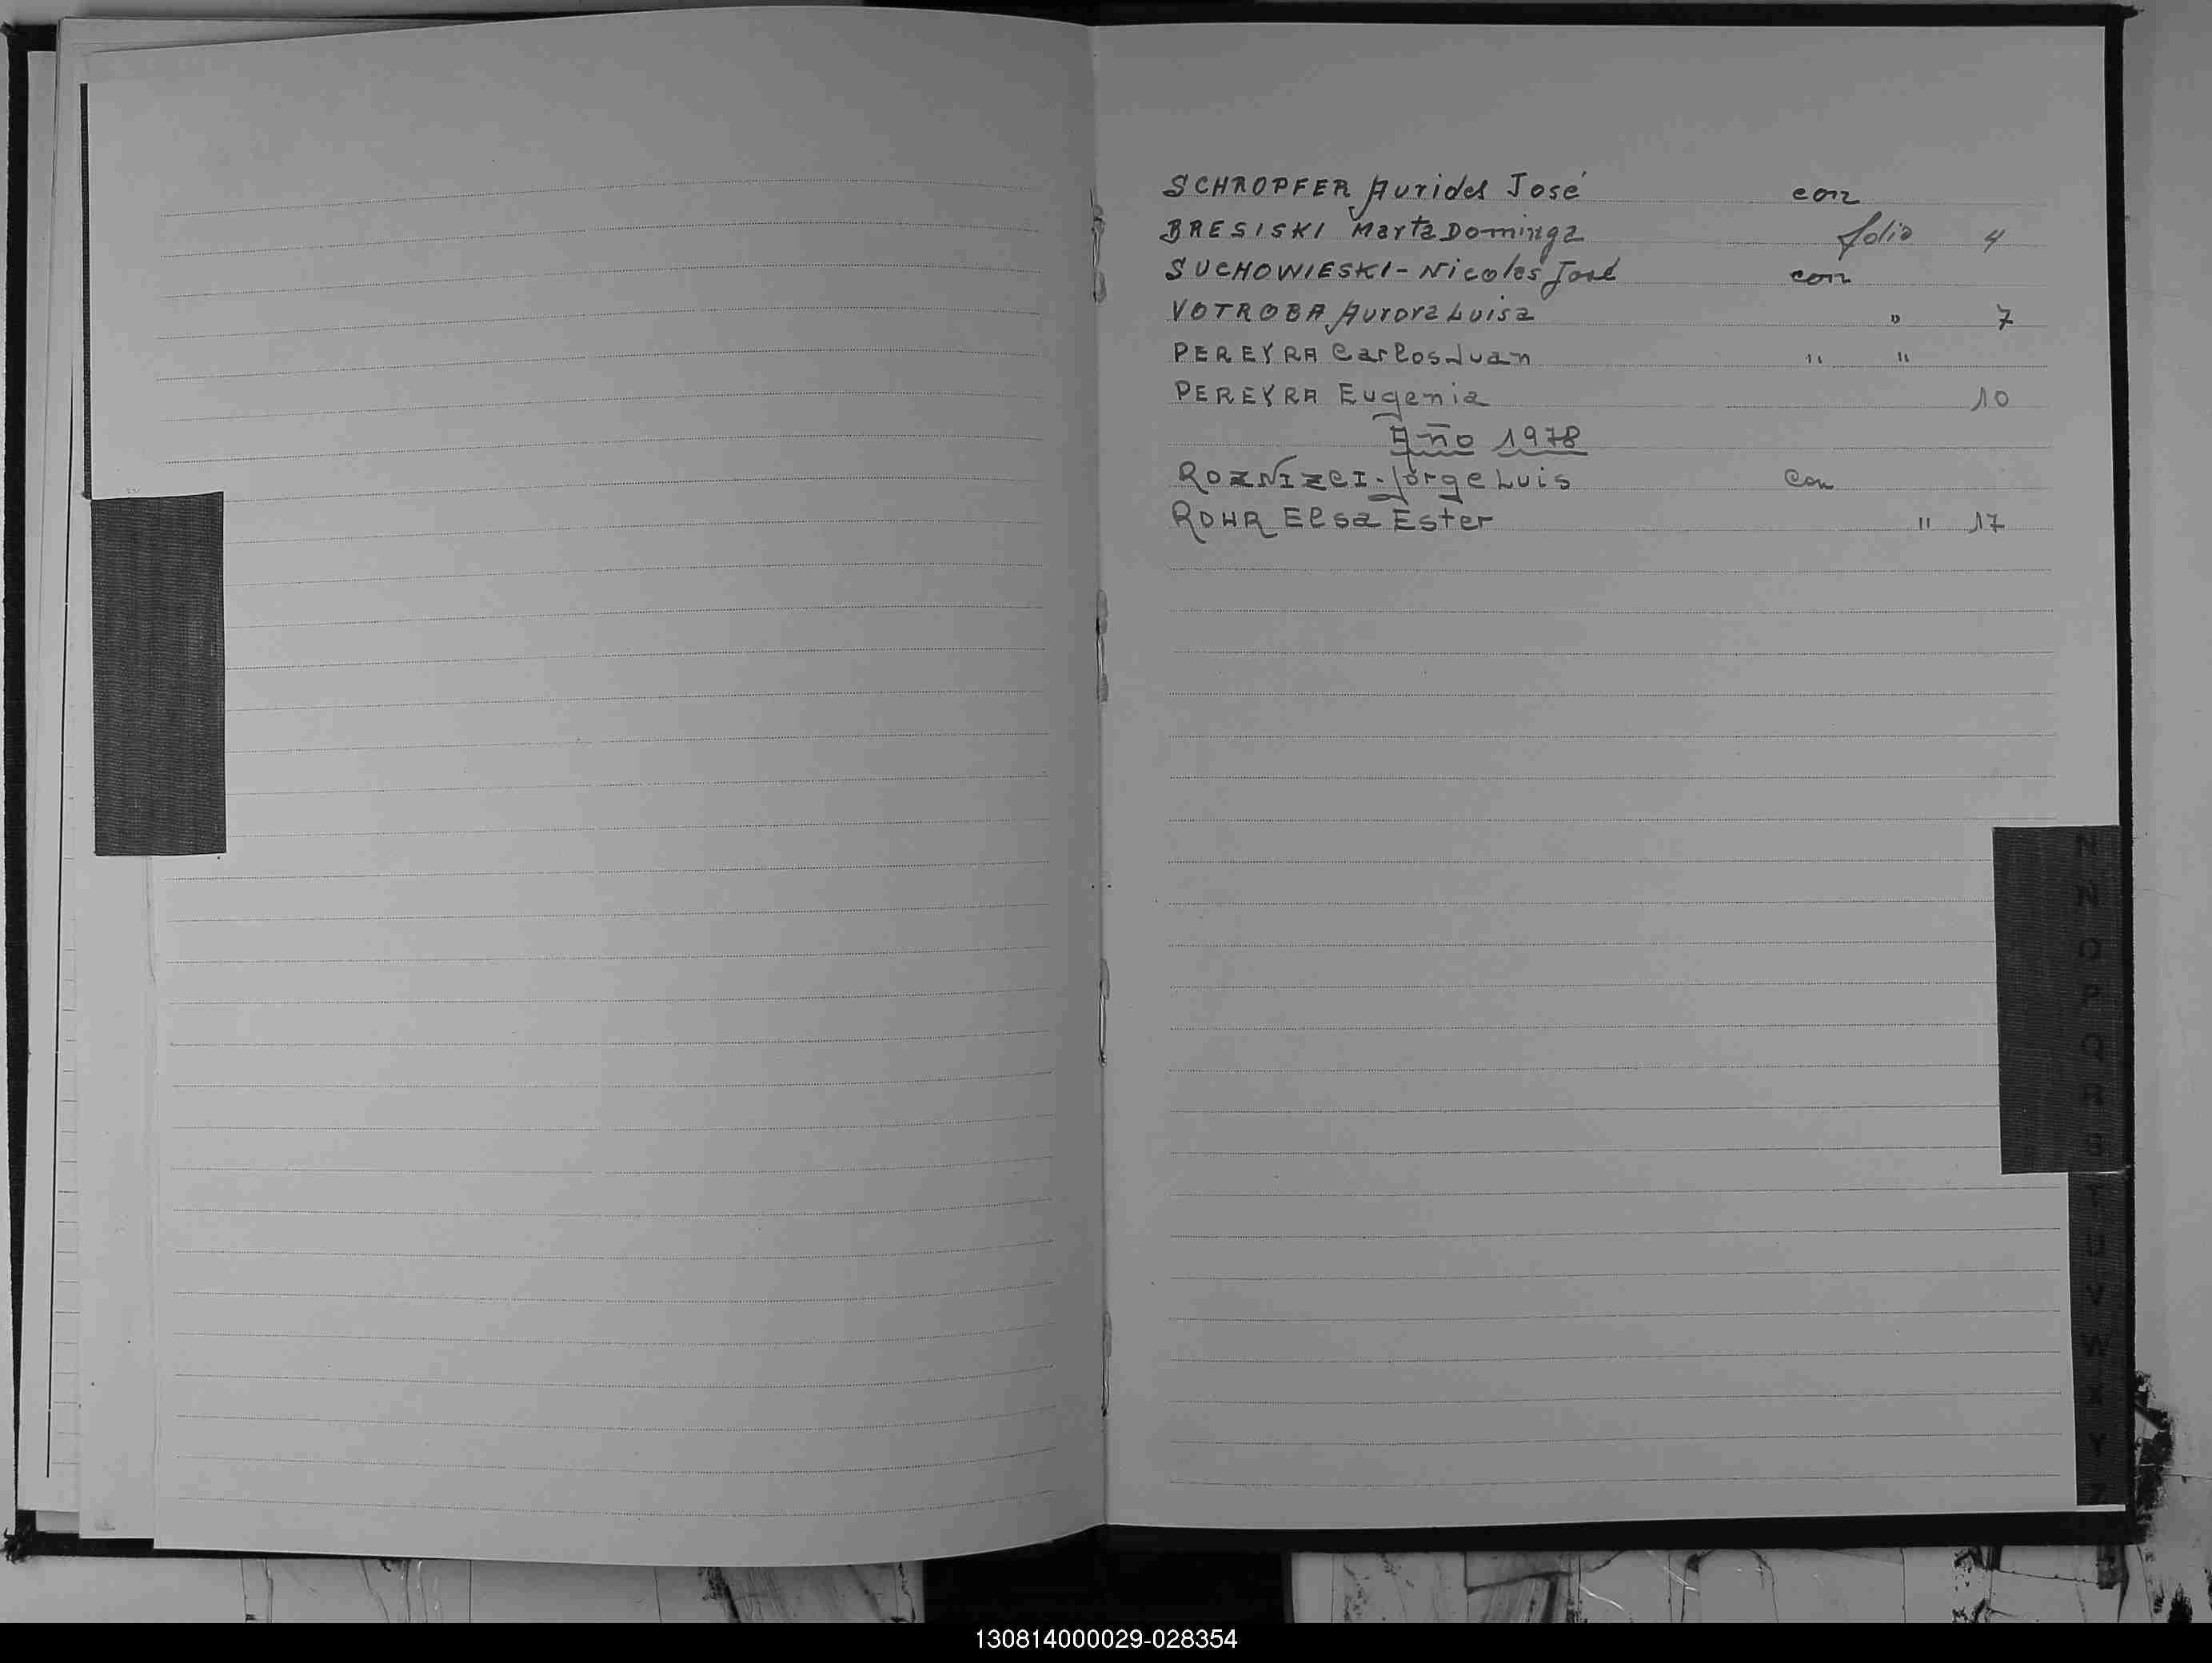 SCHROPFER Aurides José con
BRESISKI Marta Dominga folio 4
SUCHOWIESKI - Nicolas José con
VOTROBA Aurora Luisa " 7
PEREYRA Carlos Juan " "
PEREYRA Eugenia 10
Año 1978
ROZNIZCI. Jorge Luis Con
ROHR Elsa Ester " 17
N
N
O
P
Q
R
S
T
U
V
W
X
Y
Z
130814000029-028354